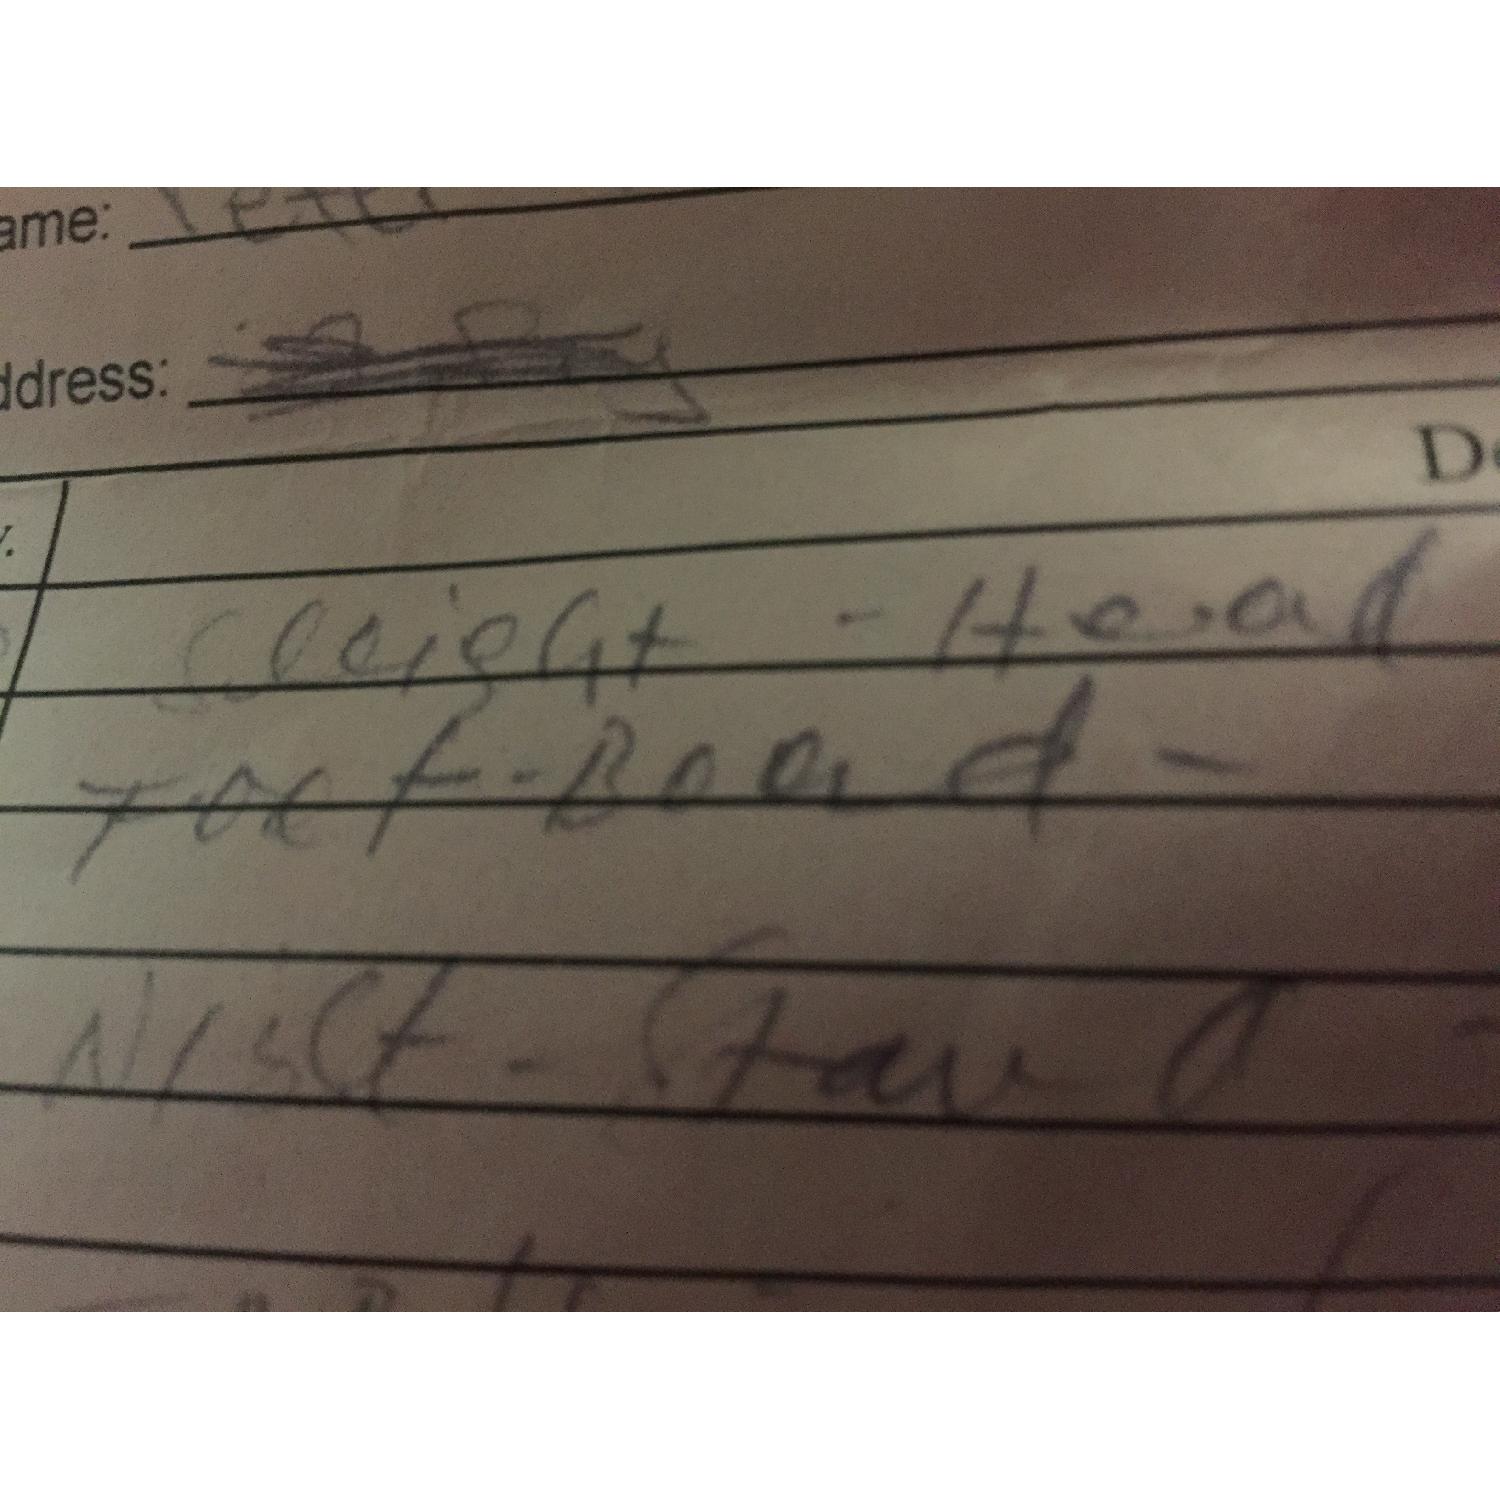 ame: Peter
ddress:
De
y.
Sleight - Head
Foot-Board -
Nist - Stand -